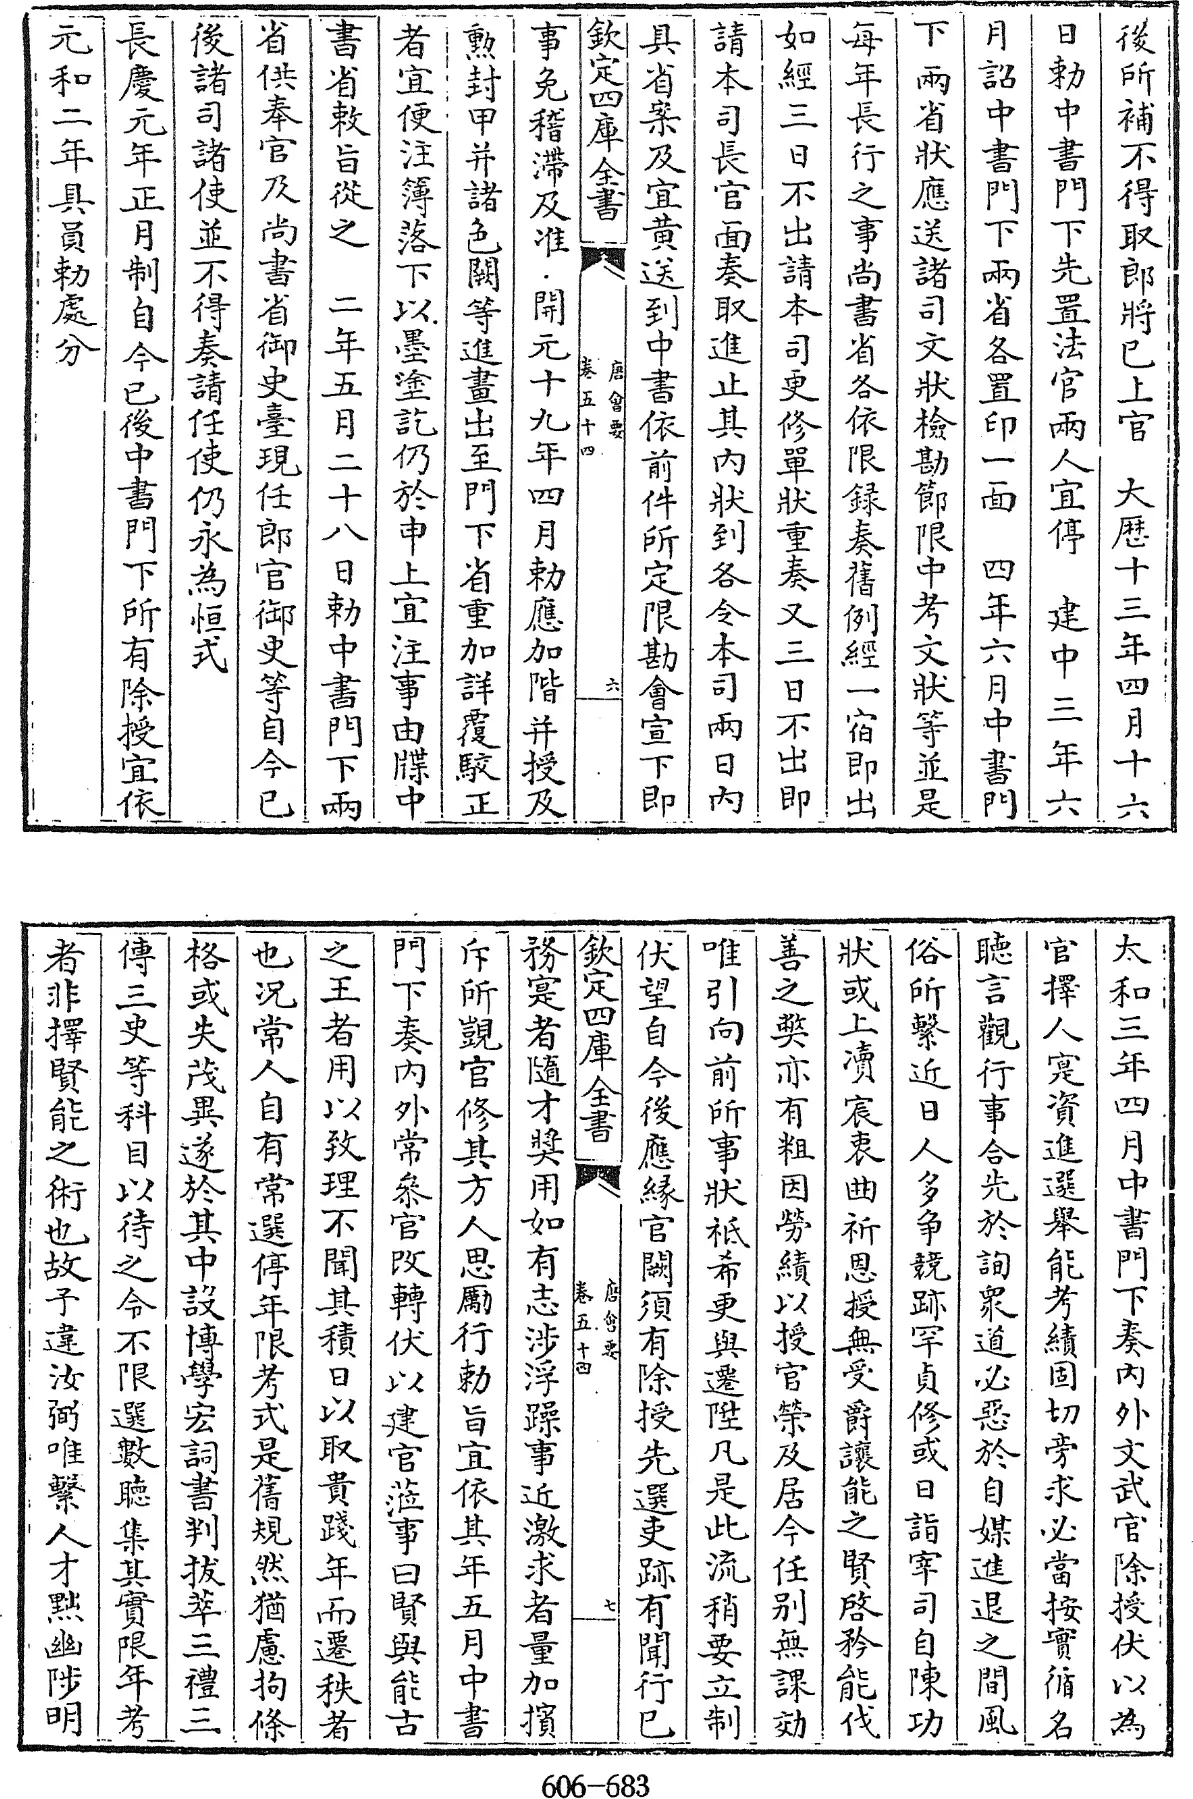 後所補不得取郎將已上官　大厯十三年四月十六
日勅中書門下先置法官兩人宜停　建中三年六
月詔中書門下兩省各置印一面　四年六月中書門
下兩省狀應送諸司文狀檢勘節限中考文狀等並是
每年長行之事尚書省各依限録奏舊例經一宿即出
如經三日不出請本司更修單狀重奏又三日不出即
請本司長官面奏取進止其内狀到各令本司兩日内
具省案及宜黄送到中書依前件所定限勘會宣下即
欽定四庫全書
唐會要
卷五十四
六
事免稽滯及准開元十九年四月勅應加階并授及
勲封甲并諸色闕等進畫出至門下省重加詳覆駮正
者宜便注簿落下以墨塗訖仍於申上宜注事由牒中
書省敕旨從之　二年五月二十八日勅中書門下兩
省供奉官及尚書省御史臺現任郎官御史等自今已
後諸司諸使並不得奏請任使仍永為恒式
長慶元年正月制自今已後中書門下所有除授宜依
元和二年具員勅處分
太和三年四月中書門下奏内外文武官除授伏以為
官擇人寔資進選舉能考績固切旁求必當按實循名
聽言觀行事合先於詢衆道必惡於自媒進退之間風
俗所繫近日人多争競跡罕貞修或日詣宰司自陳功
狀或上瀆宸衷曲祈恩授無受爵讓能之賢啓矜能伐
善之弊亦有粗因勞績以授官榮及居今任別無課効
唯引向前所事狀祗希更與遷陞凡是此流稍要立制
伏望自今後應縁官闕須有除授先選吏跡有聞行已
欽定四庫全書
唐會要
卷五十四
七
務寔者隨才奬用如有志涉浮躁事近激求者量加擯
斥所覬官修其方人思勵行勅旨宜依其年五月中書
門下奏内外常叅官改轉伏以建官蒞事曰賢與能古
之王者用以致理不聞其積日以取貴踐年而遷秩者
也况常人自有常選停年限考式是舊規然猶慮拘條
格或失茂異遂於其中設博學宏詞書判拔萃三禮三
傳三史等科目以待之今不限選數聴集其實限年考
者非擇賢能之術也故予違汝弼唯繫人才黜幽陟明
606-683